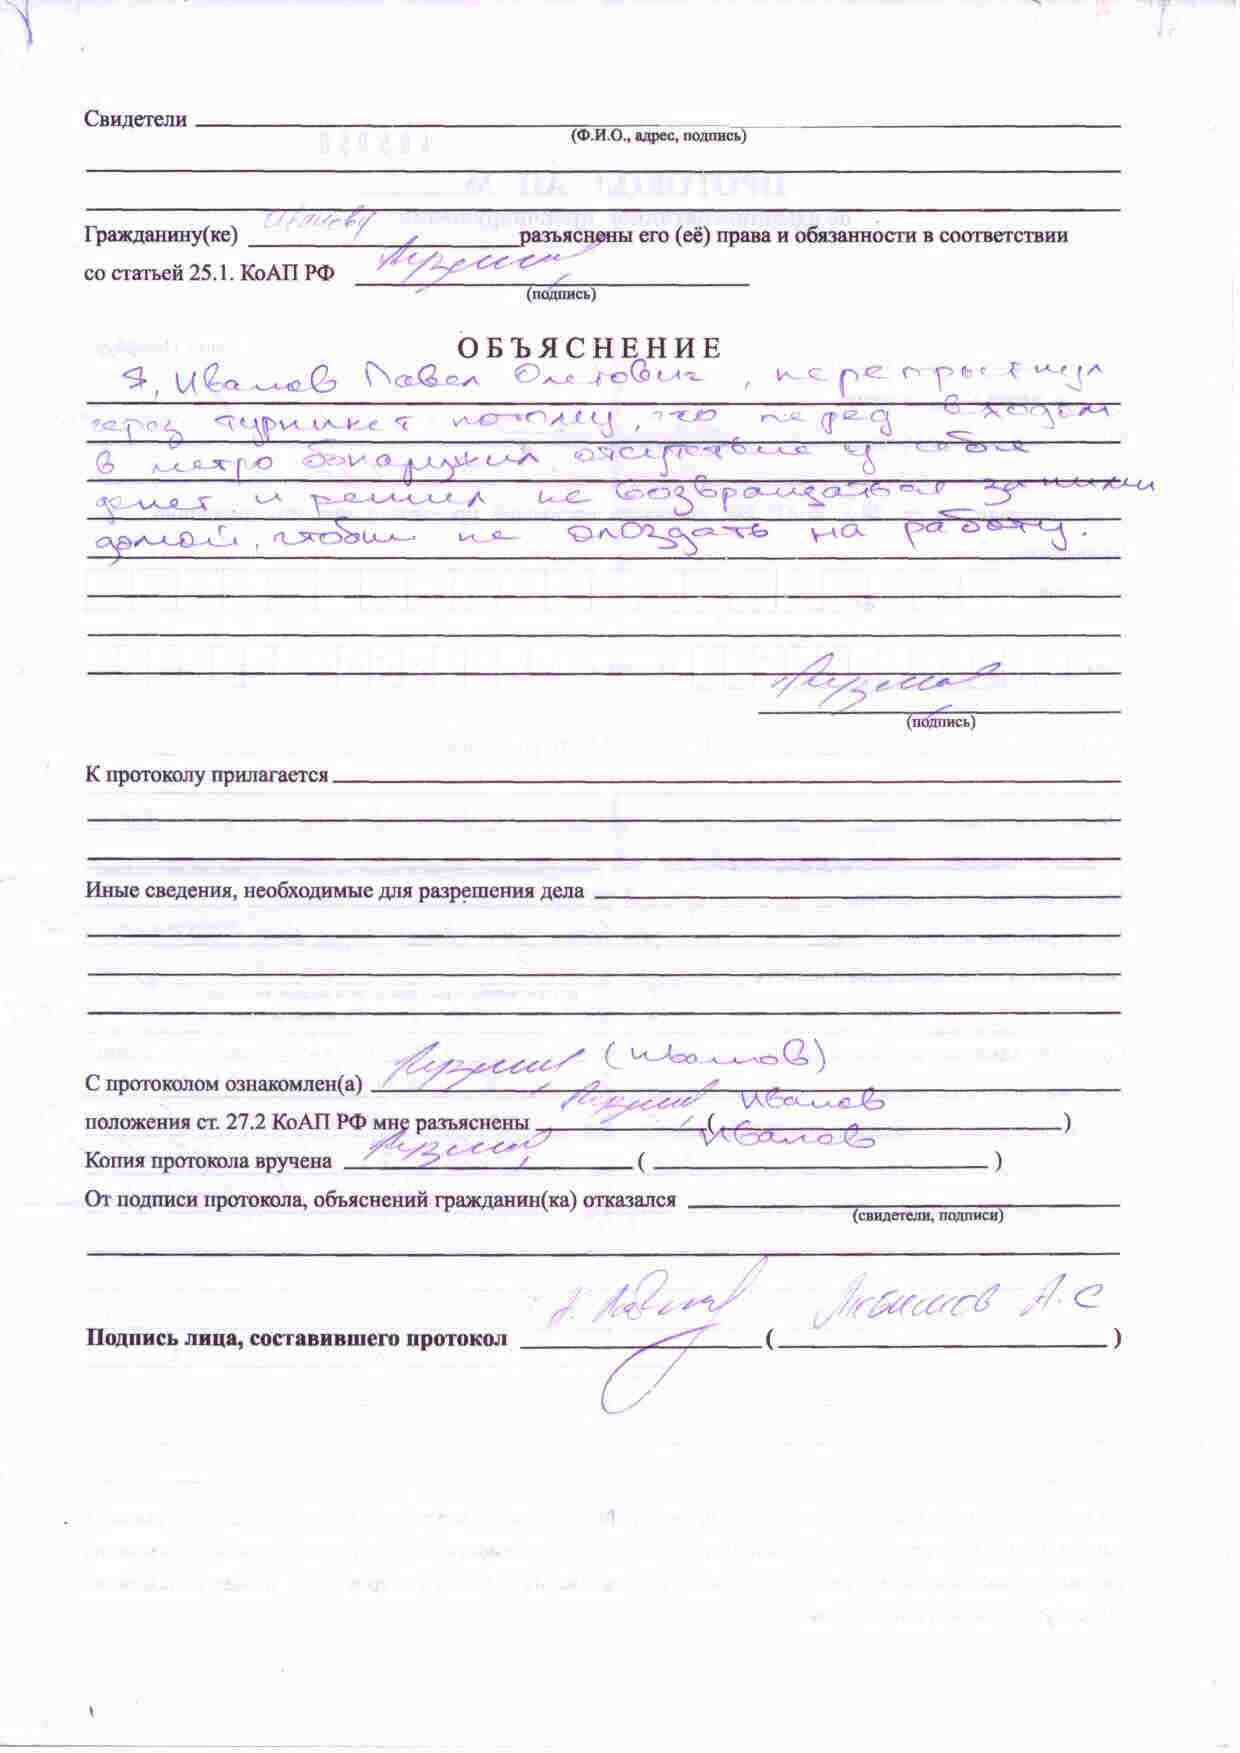 Свидетели
(Ф.И.О., адрес, подпись)
Гражданину(ке) Иванову разъяснены его (её) права и обязанности в соответствии
со статьей 25.1. КоАП РФ
(подпись)
ОБЪЯСНЕНИЕ
Я, Иванов Павел Олегович, перепрыгнул
через турникет потому, что перед входом
в метро обнаружил отсутствие у себя
денег и решил не возвращаться за ними
домой, чтобы не опоздать на работу.
(подпись)
К протоколу прилагается
Иные сведения, необходимые для разрешения дела
(Иванов)
С протоколом ознакомлен(а)
положения ст. 27.2 КоАП РФ мне разъяснены (Иванов)
Копия протокола вручена (Иванов)
От подписи протокола, объяснений гражданин(ка) отказался
(свидетели, подписи)
Подпись лица, составившего протокол ( А.С)